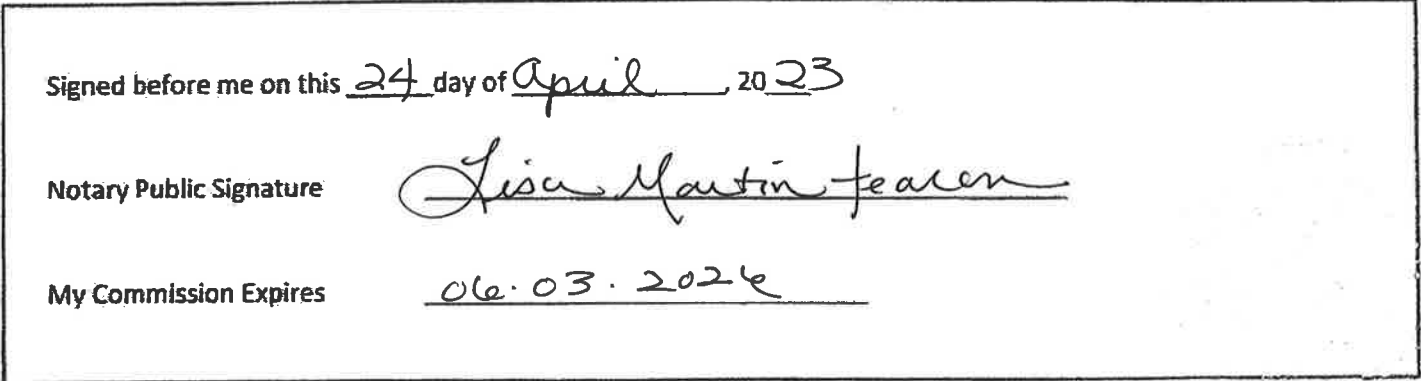 Signed before me on this 24 day of April, 2023
Notary Public Signature Lisa Martin-Fearon
My Commission Expires 06.03.2026